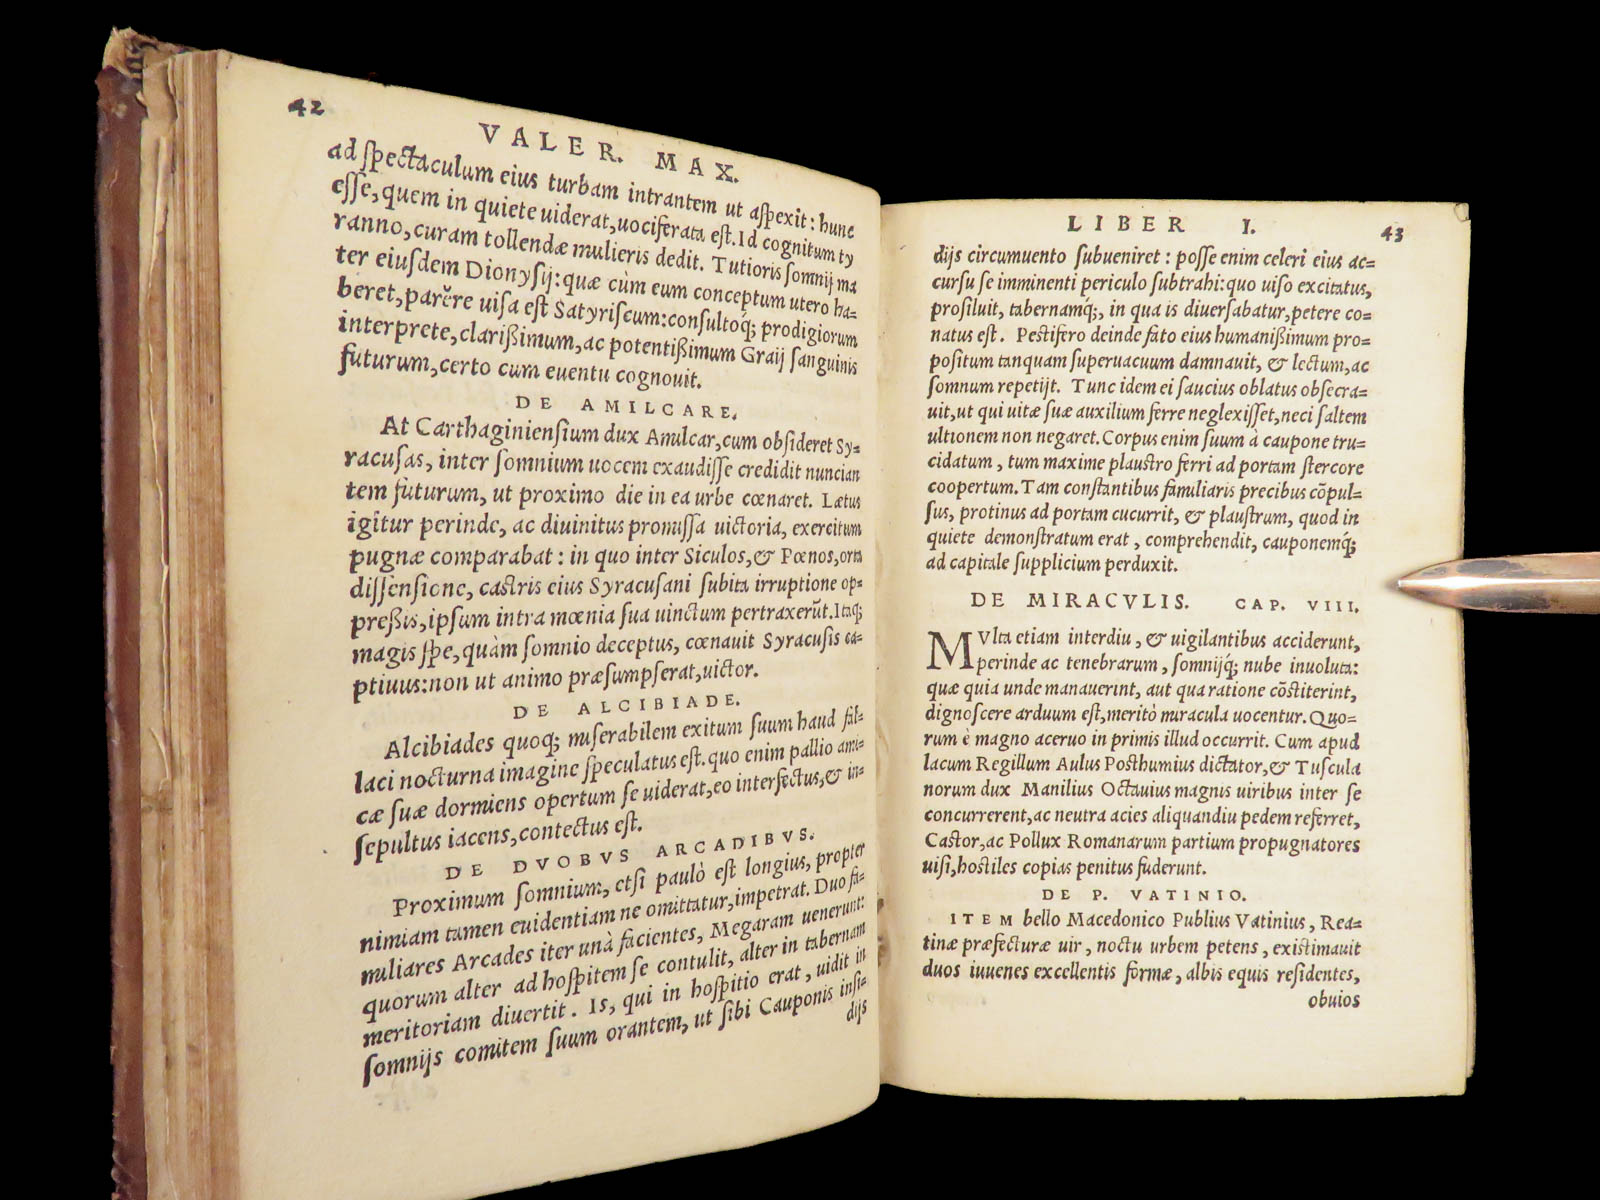 42
VALER. MAX.
ad spectaculum eius turbam intrantem ut aspexit: hunc
esse, quem in quiete uiderat, uociferata est. Id cognitum ty
ranno, curam tollendæ mulieris dedit. Tutioris somnij ma
ter eiusdem Dionysij: quæ cùm eum conceptum utero ha-
beret, parĕre uisa est Satyriscum: consultoq́; prodigiorum
interprete, clarißimum, ac potentißimum Graij sanguinis
futurum, certo cum euentu cognouit.
DE AMILCARE.
At Carthaginiensium dux Amilcar, cum obsideret Sy-
racusas, inter somnium uocem exaudisse credidit nuncian
tem futurum, ut proximo die in ea urbe cœnaret. Lætus
igitur perinde, ac diuinitus promissa uictoria, exercitum
pugnæ comparabat: in quo inter Siculos, & Pœnos, orta
dissensione, castris eius Syracusani subita irruptione op-
preßis, ipsum intra mœnia sua uinctum pertraxerūt. Itaq;
magis spe, quàm somnio deceptus, cœnauit Syracusis ca-
ptiuus: non ut animo præsumpserat, uictor.
DE ALCIBIADE.
Alcibiades quoq; miserabilem exitum suum haud fal-
laci nocturna imagine speculatus est. quo enim pallio ami-
cæ suæ dormiens opertum se uiderat, eo interfectus, & in-
sepultus iacens, contectus est.
DE DVOBVS ARCADIBVS.
Proximum somnium, etsi paulò est longius, propter
nimiam tamen euidentiam ne omittatur, impetrat. Duo fa-
miliares Arcades iter unà facientes, Megaram uenerunt:
quorum alter ad hospitem se contulit, alter in tabernam
meritoriam diuertit. Is, qui in hospitio erat, uidit in
somnijs comitem suum orantem, ut sibi Cauponis insi-
dijs
LIBER I.
43
dijs circumuento subueniret: posse enim celeri eius ac-
cursu se imminenti periculo subtrahi: quo uiso excitatus,
prosiluit, tabernamq́;, in qua is diuersabatur, petere co-
natus est. Pestifero deinde fato eius humanißimum pro-
positum tanquam superuacuum damnauit, & lectum, ac
somnum repetijt. Tunc idem ei saucius oblatus obsecra-
uit, ut qui uitæ suæ auxilium ferre neglexisset, neci saltem
ultionem non negaret. Corpus enim suum à caupone tru-
cidatum, tum maxime plaustro ferri ad portam stercore
coopertum. Tam constantibus familiaris precibus cōpul-
sus, protinus ad portam cucurrit, & plaustrum, quod in
quiete demonstratum erat, comprehendit, cauponemq́;
ad capitale supplicium perduxit.
DE MIRACVLIS. CAP. VIII.
MVlta etiam interdiu, & uigilantibus acciderunt,
perinde ac tenebrarum, somnijq́; nube inuoluta:
quæ quia unde manauerint, aut qua ratione cōstiterint,
dignoscere arduum est, meritò miracula uocentur. Quo-
rum è magno aceruo in primis illud occurrit. Cum apud
lacum Regillum Aulus Posthumius dictator, & Tuscula
norum dux Manilius Octauius magnis uiribus inter se
concurrerent, ac neutra acies aliquandiu pedem referret,
Castor, ac Pollux Romanarum partium propugnatores
uisi, hostiles copias penitus fuderunt.
DE P. VATINIO.
ITEM bello Macedonico Publius Vatinius, Rea-
tinæ præfecturæ uir, noctu urbem petens, existimauit
duos iuuenes excellentis formæ, albis equis residentes,
obuios